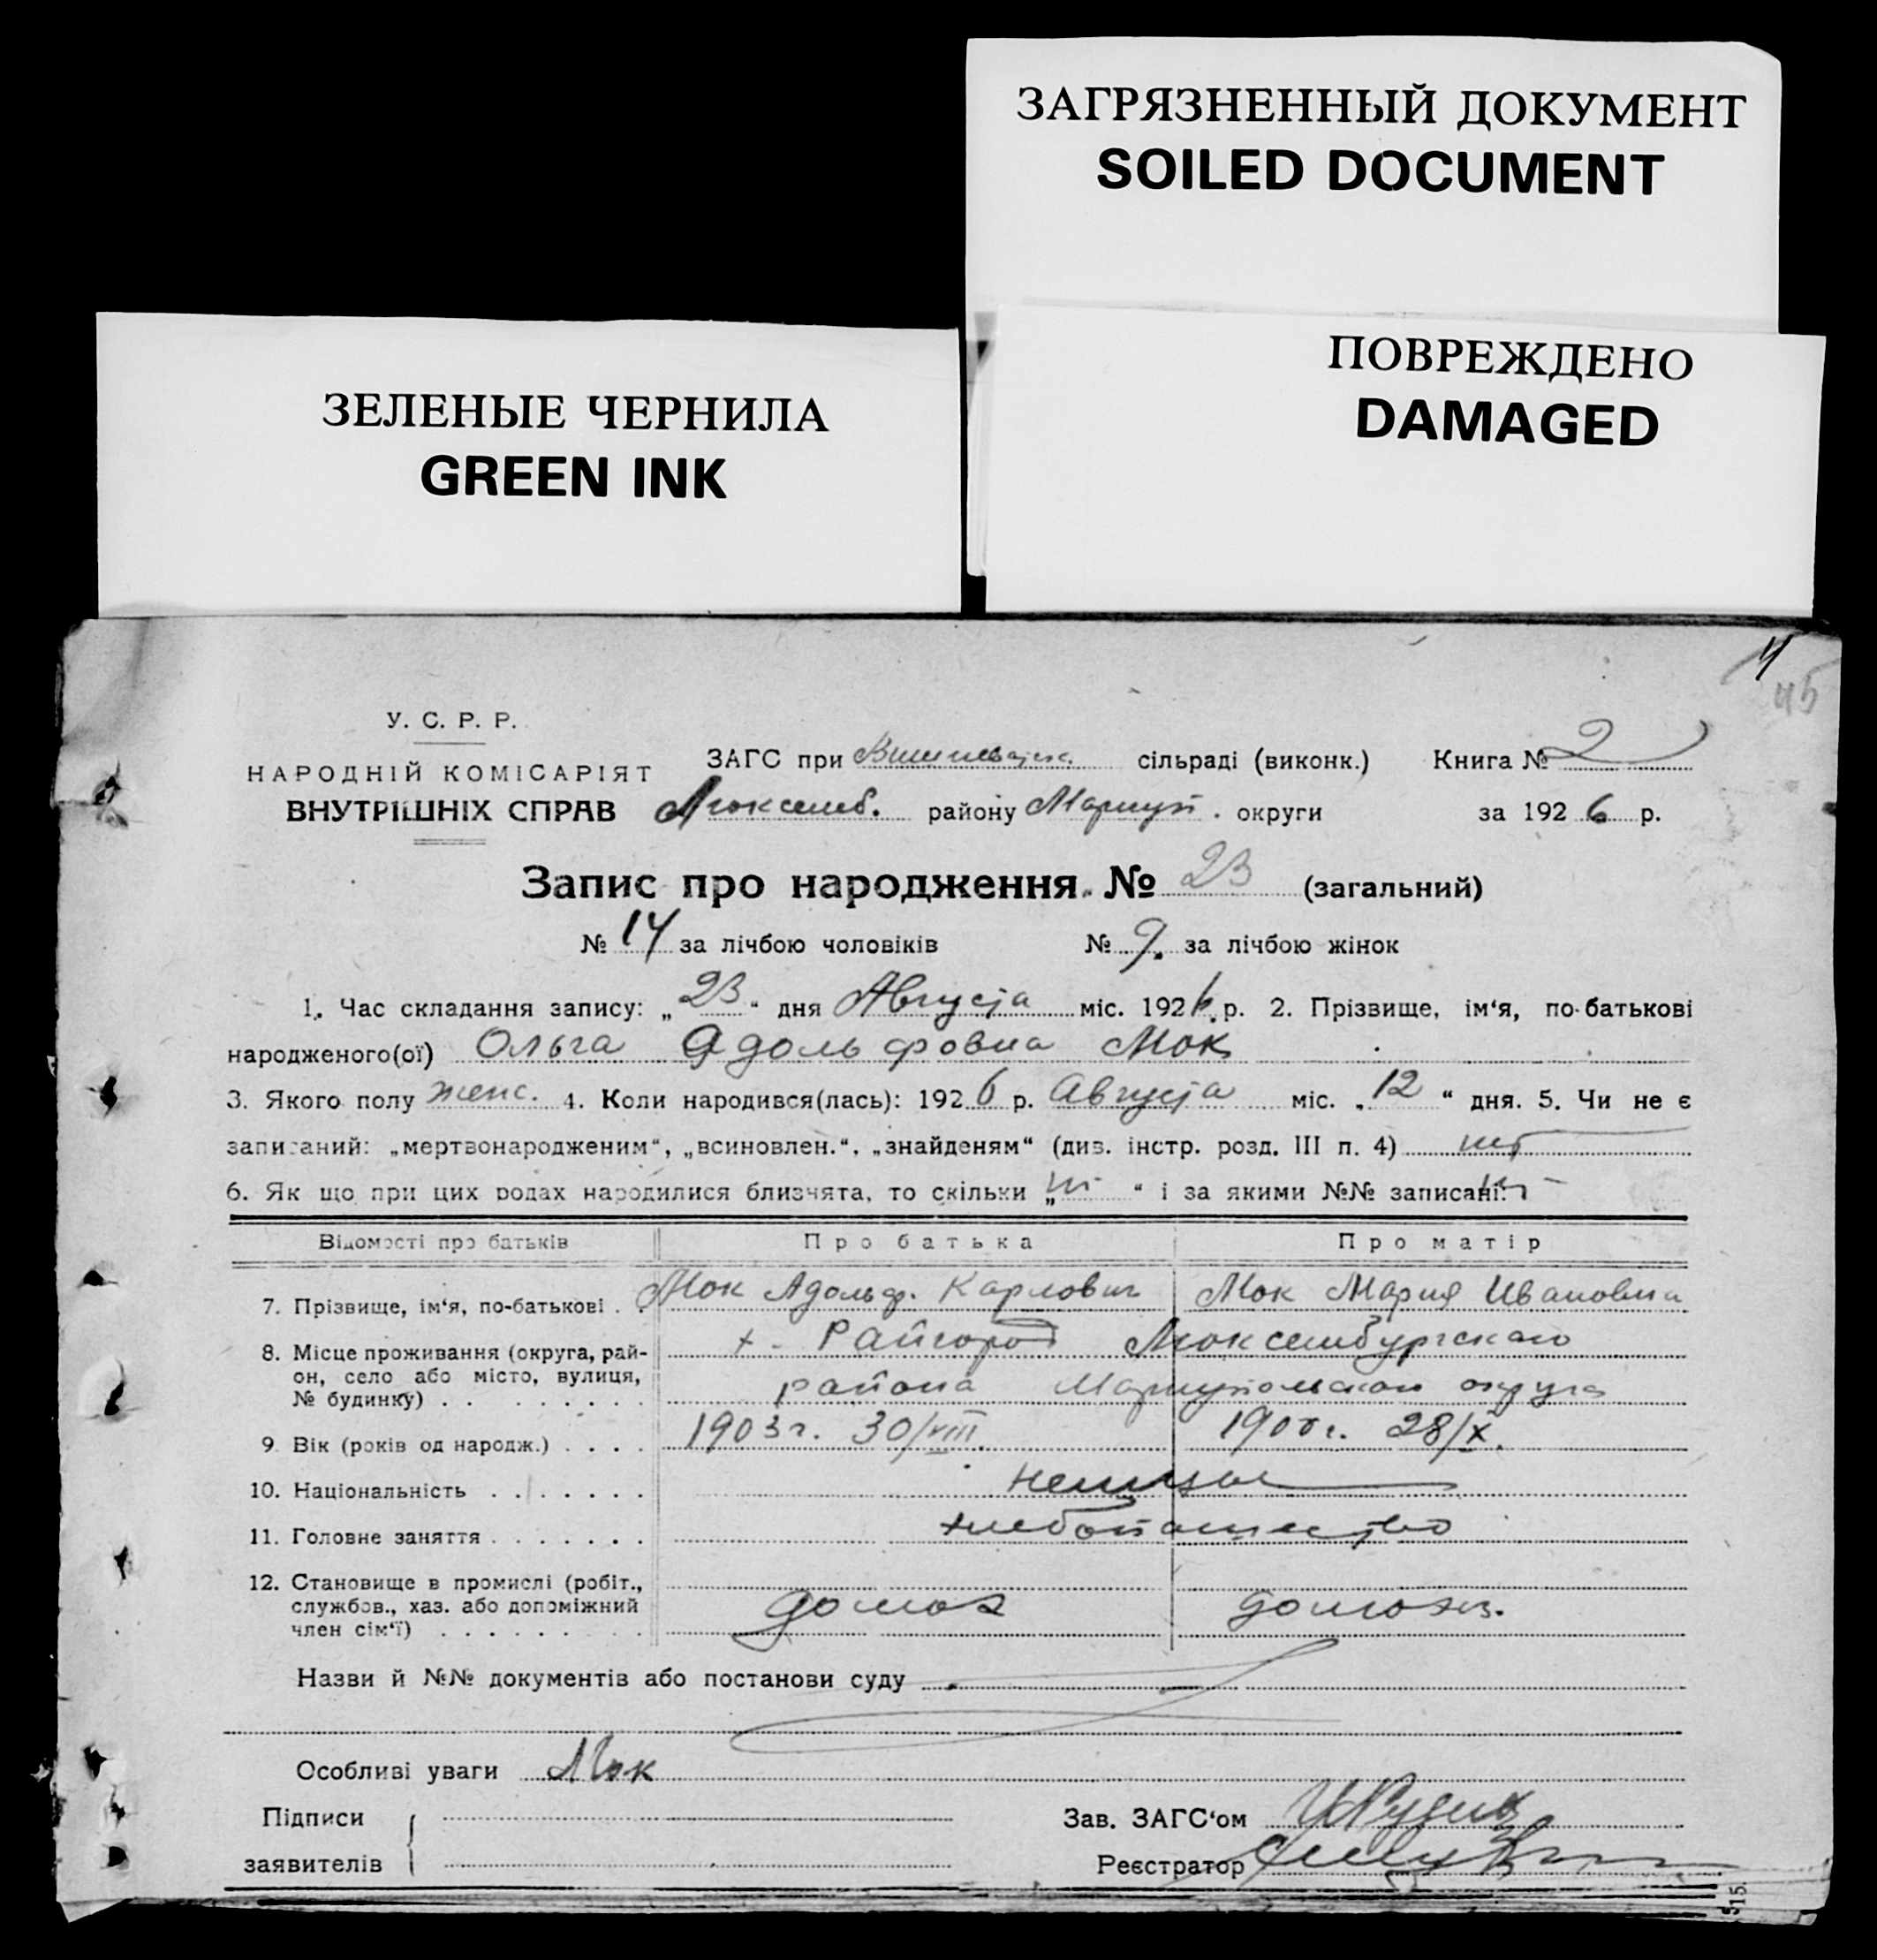 ЗАГРЯЗНЕННЫЙ ДОКУМЕНТ
SOILED DOCUMENT
ПОВРЕЖДЕНО
DAMAGED
ЗЕЛЕНЫЕ ЧЕРНИЛА
GREEN INK
45
У. С. Р. Р.
НАРОДНІЙ КОМІСАРІЯТ
ВНУТРІШНІХ СПРАВ
ЗАГС при сільраді (виконк.) Книга № 2
Люксемб. району Мариуп. округи за 1926 р.
Запис про народження № 23 (загальний)
№ 14 за лічбою чоловіків № 9. за лічбою жінок
1. Час складання запису: „23“ дня Августа міс. 1926 р. 2. Прізвище, ім‘я, по-батькові
народженого(ої) Ольга Адольфовна Мок
3. Якого полу женс. 4. Коли народився(лась): 1926 р. Августа міс. „12“ дня. 5. Чи не є
записаний: „мертвонародженим“, „всиновлен.“, „знайденям“ (див. інстр. розд. III п. 4) нет
6. Як що при цих родах народилися близнята, то скільки „ “ і за якими №№ записані:
Відомості про батьків Про батька Про матір
7. Прізвище, ім‘я, по-батькові . . Мок Адольф. Карлович Мок Мария Ивановна
8. Місце проживання (округа, рай- х. Райгород Люксембургского
он, село або місто, вулиця, района Мариупольской округа
№ будинку) . . . . . . . .
9. Вік (років од народж.) . . . . 1903г. 30/VIII. 1900г. 28/X.
10. Національність . . . . . . . немцы
11. Головне заняття . . . . . . . хлебопашество
12. Становище в промислі (робіт.,
службов., хаз. або допоміжний домохоз домохоз.
член сім‘ї) . . . . . . . . .
Назви й №№ документів або постанови суду
Особливі уваги Мок
Підписи
заявителів
Зав. ЗАГС‘ом
Реєстратор